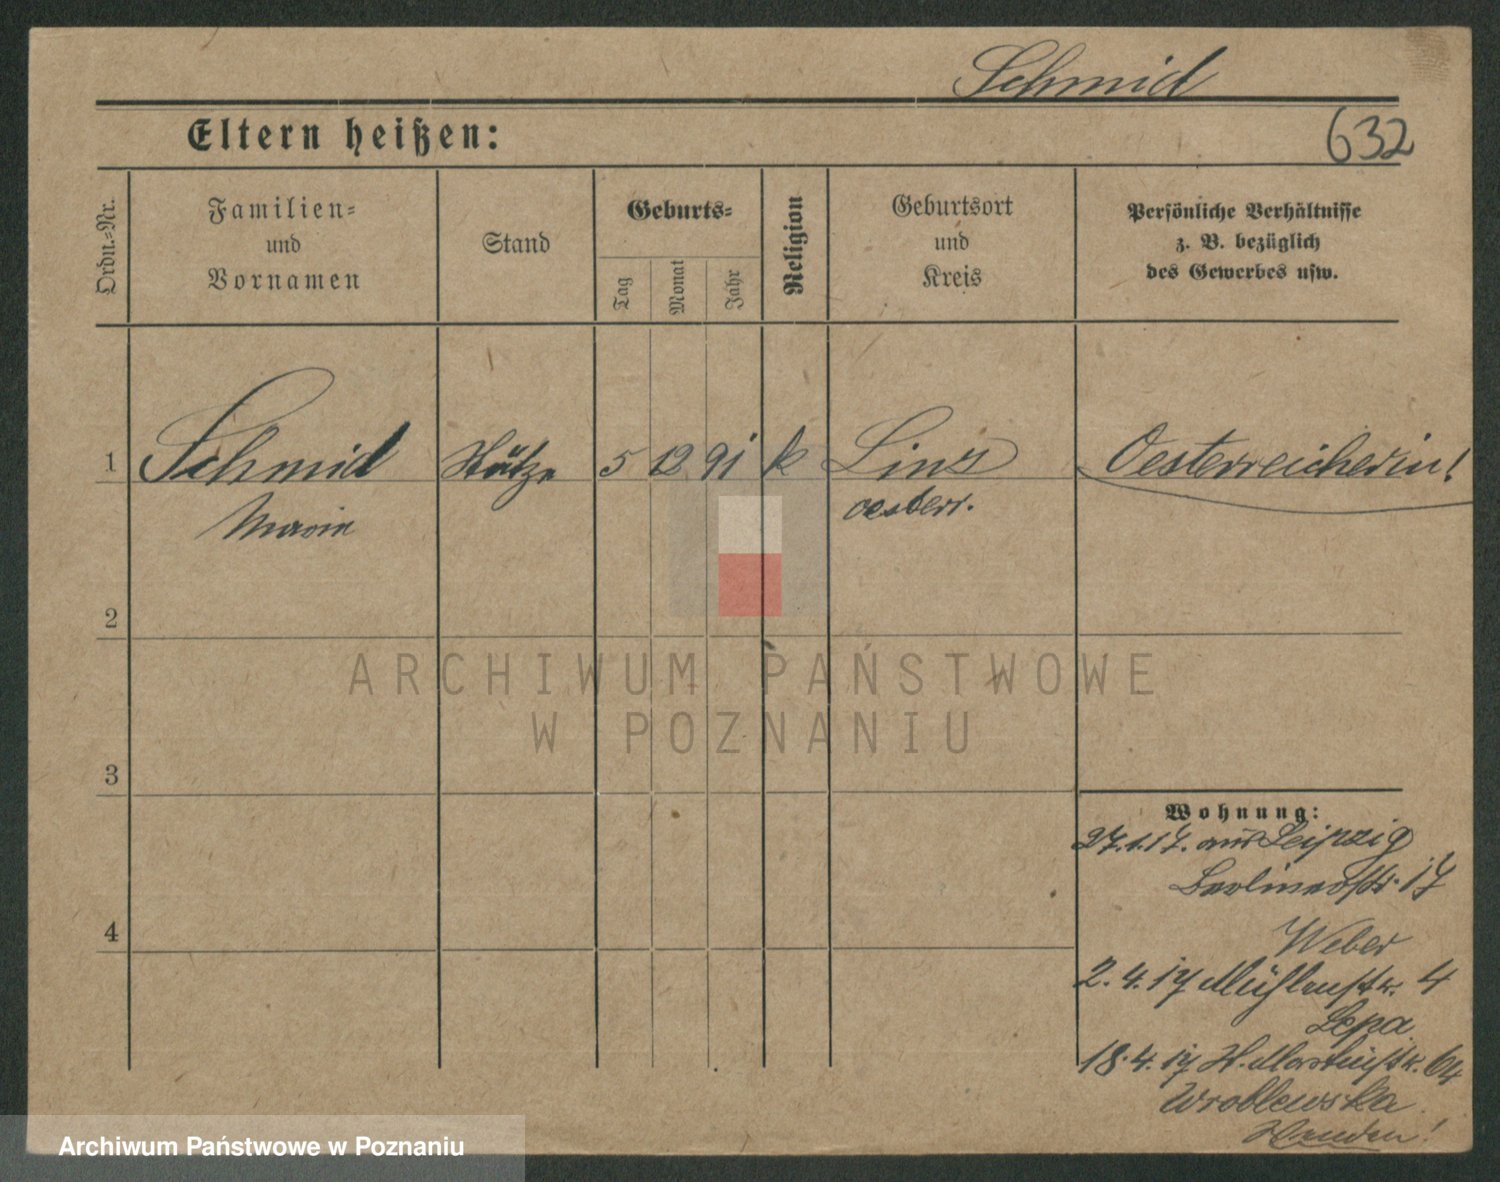 Schmid
632
Eltern heißen:
Ordn.-Nr.
Familien-
und
Vornamen
Stand
Geburts-
Tag
Monat
Jahr
Religion
Geburtsort
und
Kreis
Persönliche Verhältnisse
z. B. bezüglich
des Gewerbes usw.
1 Schmid Stütze 5 12 91 k Linz Oesterreicherin!
Marie oesterr.
2
ARCHIWUM PAŃSTWOWE
W POZNANIU
3
Wohnung:
27.1.17. aus Leipzig
Berlinerstr. 17
Weber
4
2.4.17 Mühlenstr. 4
Lepa
18.4.17 H. Martinstr. 64
Wroblewska
Wenden!
Archiwum Państwowe w Poznaniu